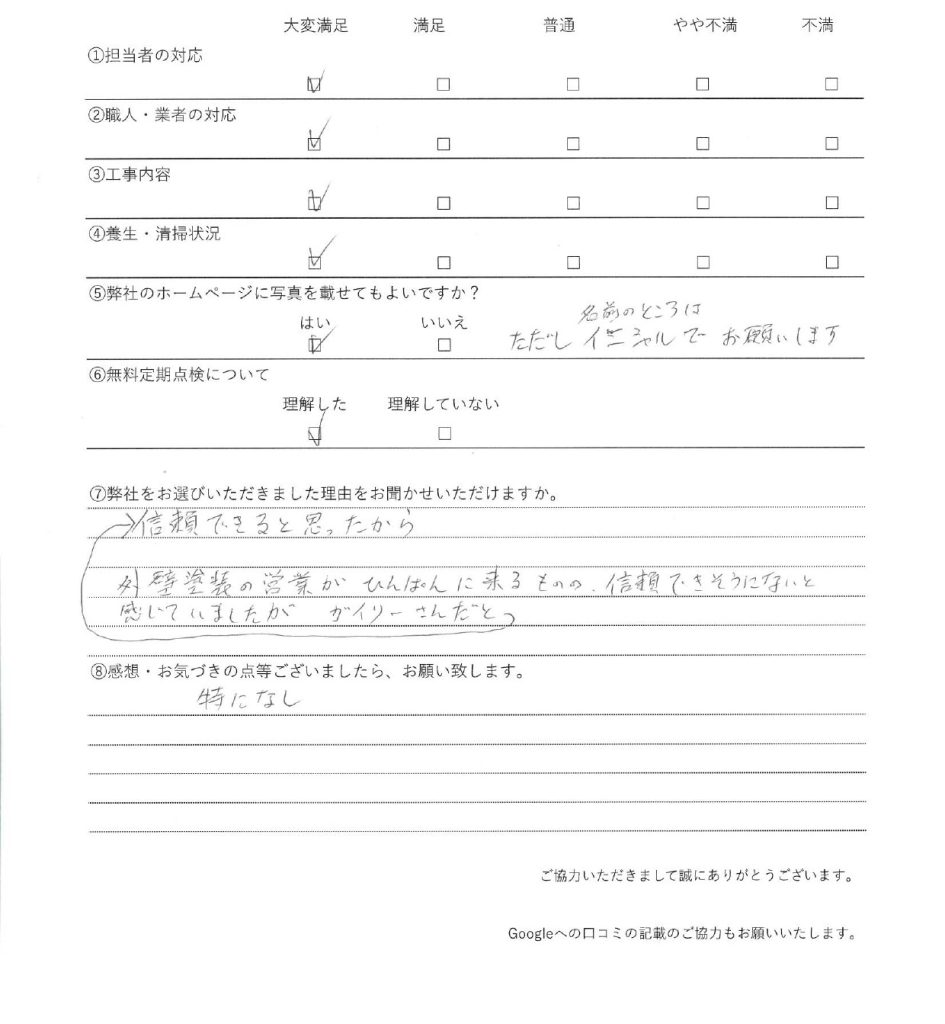 大変満足 満足 普通 やや不満 不満
①担当者の対応
☑ □ □ □ □
②職人・業者の対応
☑ □ □ □ □
③工事内容
☑ □ □ □ □
④養生・清掃状況
☑ □ □ □ □
⑤弊社のホームページに写真を載せてもよいですか？
名前のところは
はい いいえ
ただし イニシャルで お願いします
☑ □
⑥無料定期点検について
理解した 理解していない
☑ □
⑦弊社をお選びいただきました理由をお聞かせいただけますか。
→信頼できると思ったから
外壁塗装の営業が ひんぱんに来るものの、信頼できそうにないと
感じていましたが ガイソーさんだと
⑧感想・お気づきの点等ございましたら、お願い致します。
特になし
ご協力いただきまして誠にありがとうございます。
Googleへの口コミの記載のご協力もお願いいたします。